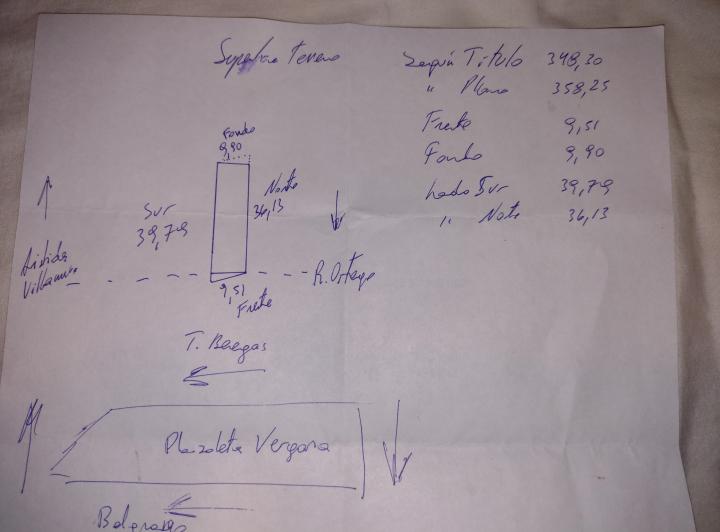 Superficie terreno
Según Título 348,30
" Plano 358,25
Frente 9,51
Fondo 9,90
Lado Sur 39,79
" Norte 36,13
Fondo
9,90
Sur
39,79
Norte
36,13
Villanueva
R. Ortega
9,51
Frente
T. Benegas
Plazoleta Vergara
Belgrano